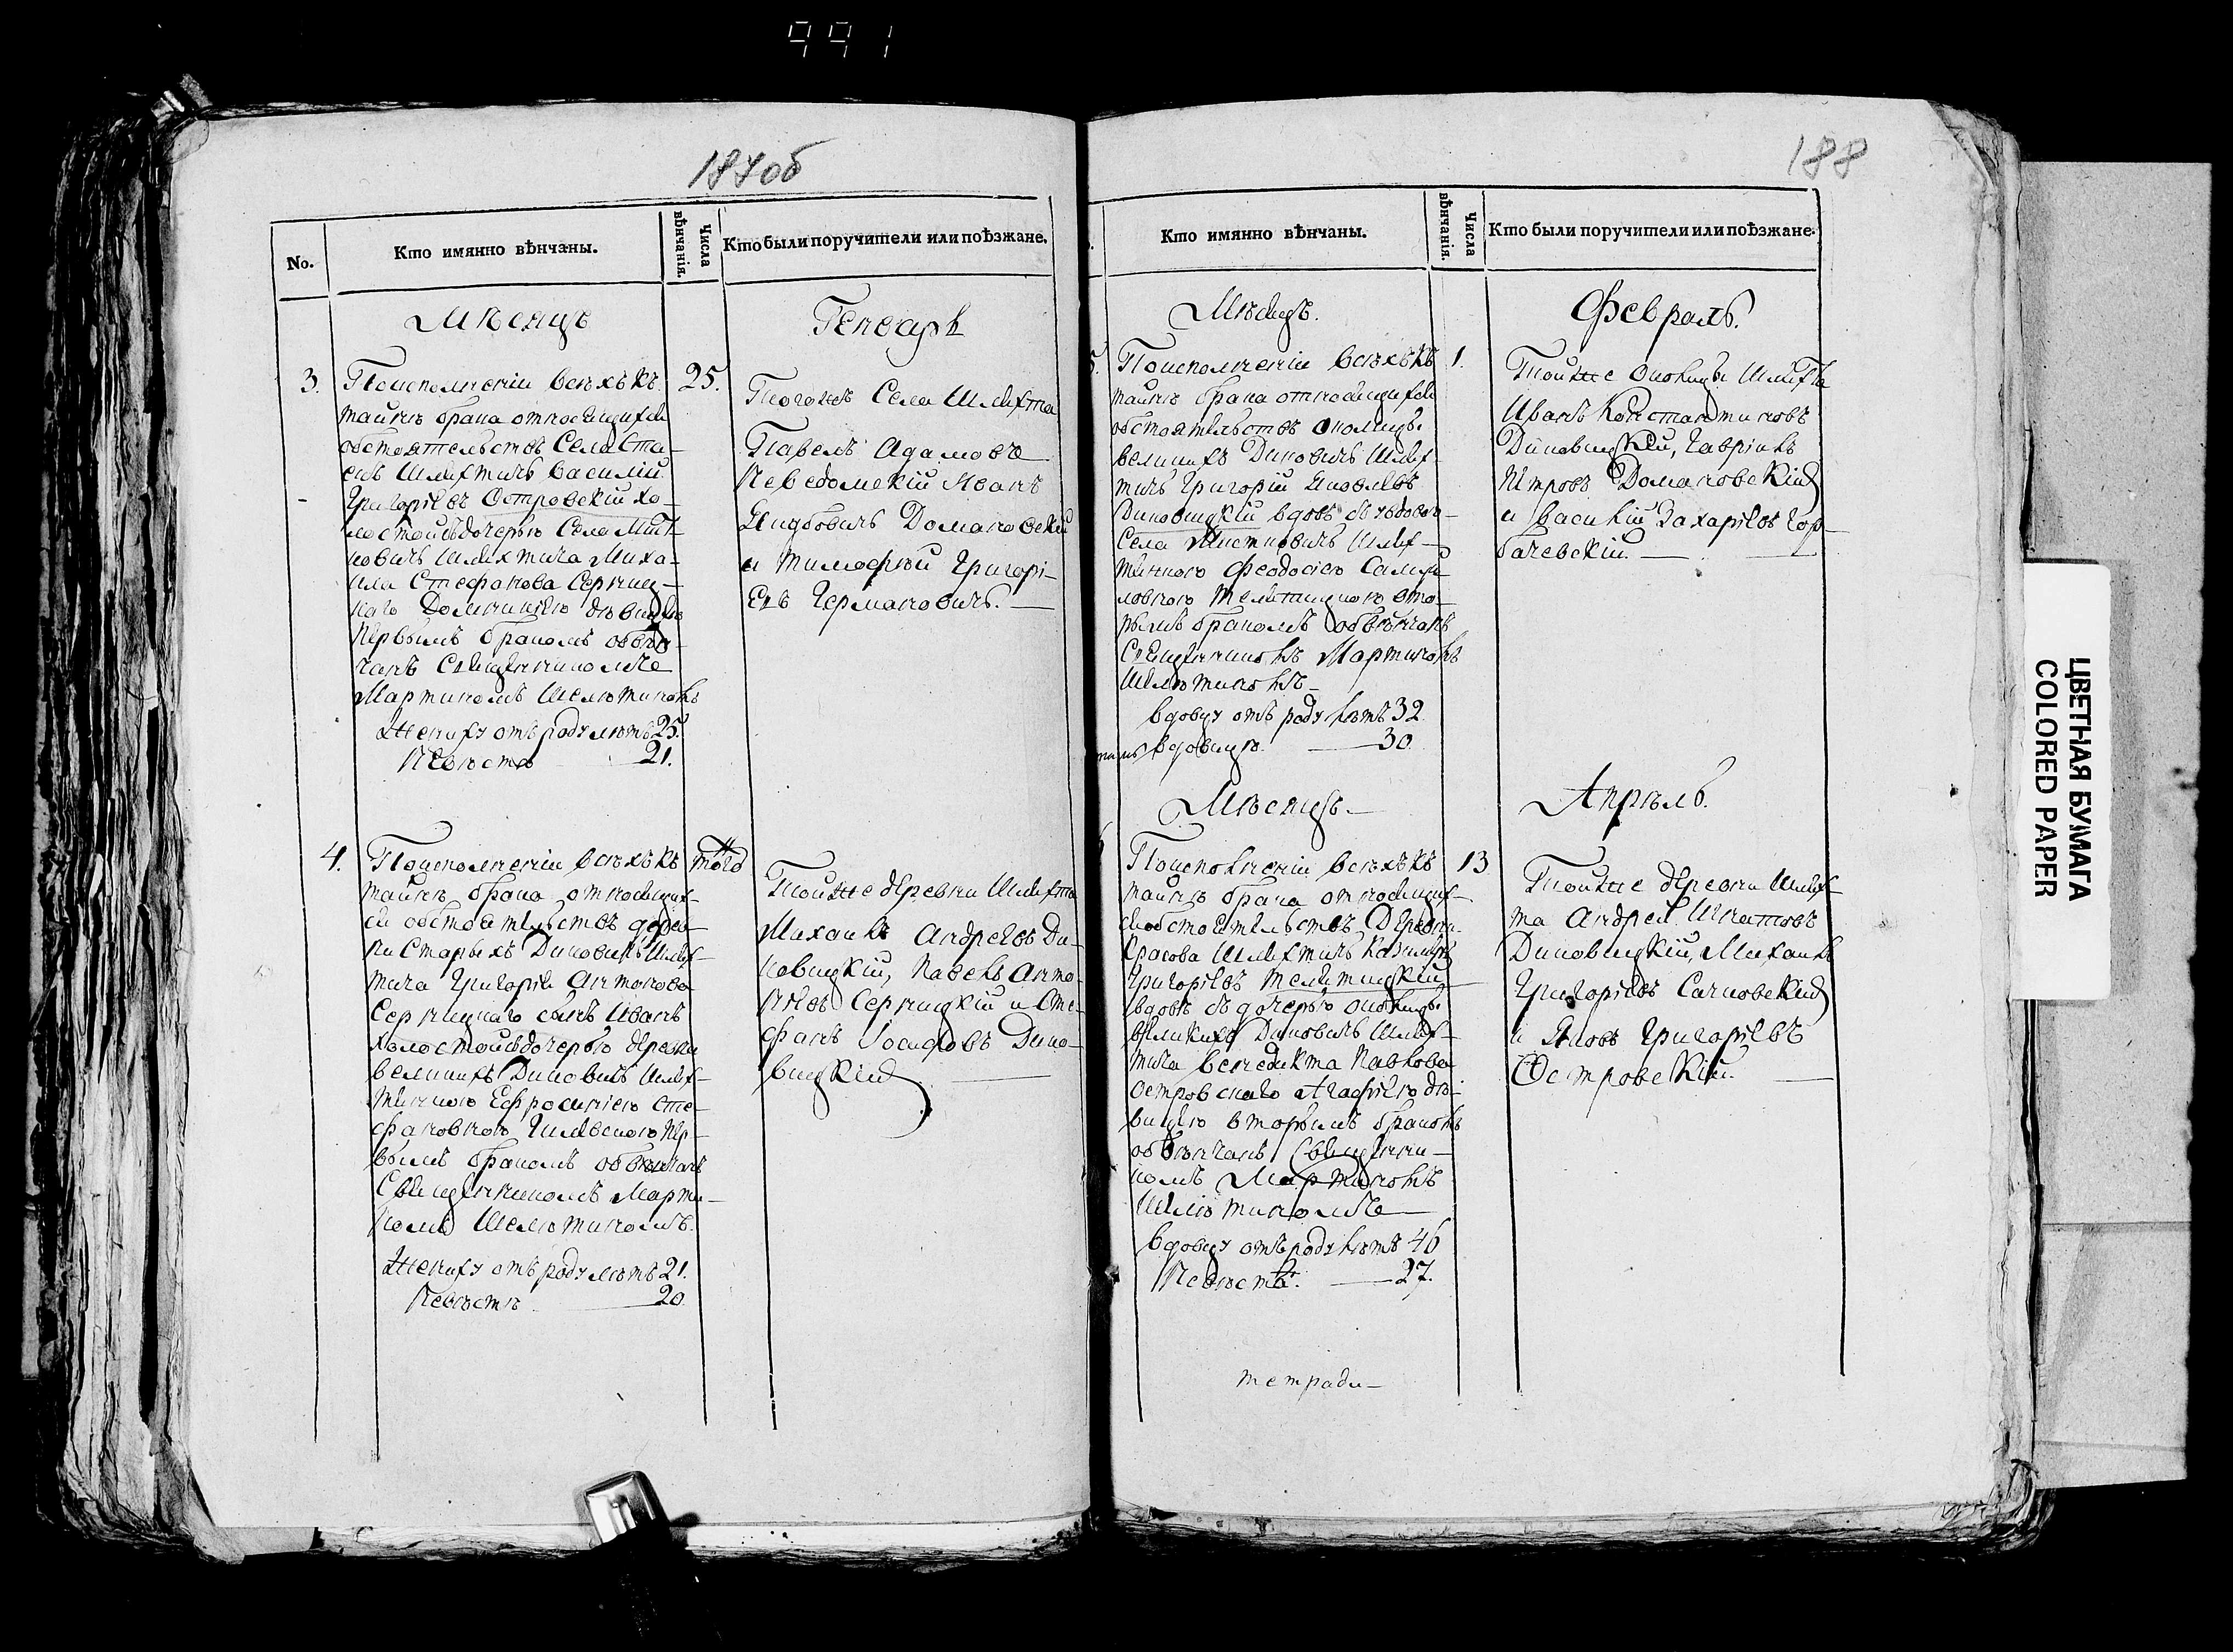 991
187об
No.
Кто имянно вѣнчаны.
Числа вѣнчанія.
Кто были поручители или поѣзжане.
Мѣсяцъ
Генварь
3.
По исполненіи всѣхъ къ
тайнѣ брака относящихся
обстоятельствъ Села
Шляхтичь Василій
Григорiевъ Островскій хо-
лостой съ дочерью Села
Шляхтича Миха-
ила Стефанова Серниц-
каго Домникіею дѣвицею
первымъ бракомъ обвѣн-
чанъ Священникомъ
Мартиномъ Шелютиномъ
Жениху отъ роду лѣтъ 25.
Невѣстѣ 21.
25.
Тогожъ Села Шляхта
Павелъ Адамовъ
Неведомскій Иванъ
Домановскій
и Тимофѣй Григорі-
евъ Германовичь.
4.
По исполненіи всѣхъ къ
тайнѣ брака относящих-
ся обстоятельствъ дерев-
ни Старыхъ Диковичь Шлях-
тича Григорія Антонова
Серницкаго сынъ Иванъ
холостой съ дочерью деревни
Великихъ Диковичь Шлях-
тичною Ефросиніею Сте-
фановною пер-
вымъ бракомъ обвѣнчанъ
Священникомъ Марти-
номъ Шелютиномъ.
Жениху отъ роду лѣтъ 21.
Невѣстѣ 20.
того
Той же деревни Шляхта
Михаилъ Андреевъ Ди-
ковицкій, Павелъ Анто-
новъ Серницкій и Сте-
фанъ Іосифовъ Дико-
вицкій
188
Кто имянно вѣнчаны.
Числа вѣнчанія.
Кто были поручители или поѣзжане.
Мѣсяцъ.
Февраль.
5.
По исполненіи всѣхъ къ
тайнѣ брака относящихся
обстоятельствъ околицы
Великихъ Диковичь Шлях-
тичь Григорій Яковлевъ
Диковицкій вдовъ съ вдовою
Села Шлях-
тичною Феодосіею Самуи-
ловною вто-
рымъ бракомъ обвѣнчанъ
Священникомъ Мартиномъ
Шелютиномъ
Вдовцу отъ роду лѣтъ 32.
вдовицѣ 30
1.
Той же околицы Шляхта
Иванъ Константиновъ
Диковицкій, Гавріилъ
Петровъ Домановскій
и Василій Захаріевъ Гор-
бачевскій.
Мѣсяцъ
Апрѣль.
По исполненіи всѣхъ къ
тайнѣ брака относящих-
ся обстоятельствъ Деревни
Шляхтичь Казимиръ
Григорiевъ Телятицкій
вдовъ съ дочерью околицы
Великихъ Диковичь Шлях-
тича Венедикта Павлова
Островскаго Агафіею дѣ-
вицею вторымъ бракомъ
обвѣнчанъ Священни-
комъ Мартиномъ
Шелютиномъ
Вдовцу отъ роду лѣтъ 46
Невѣстѣ. 27.
13
Той же деревни Шлях-
та Андрей Игнатовъ
Диковицкій, Михаилъ
Григорiевъ Сачковскій
и Яковъ Григорiевъ
Островскій.
тетради
ЦВЕТНАЯ БУМАГА
COLORED PAPER